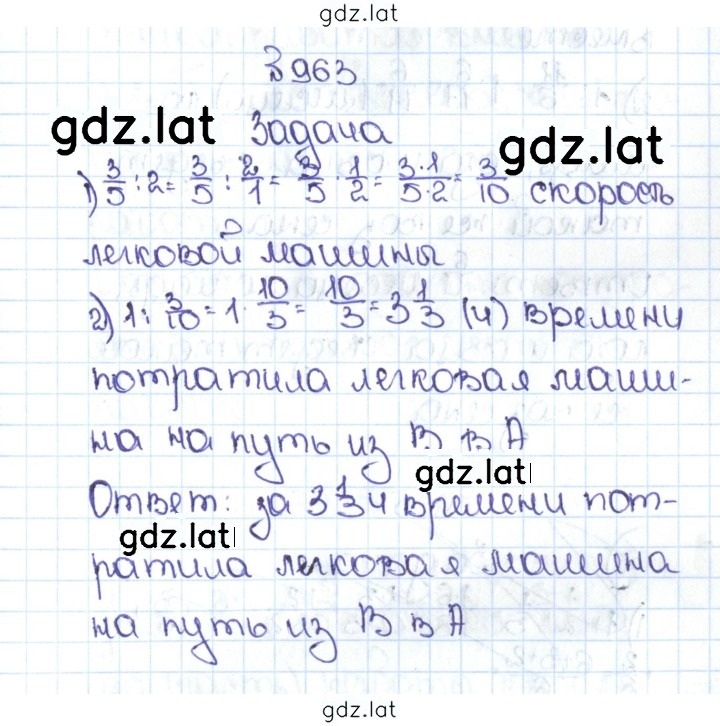 gdz.lat
№ 963
gdz.lat Задача gdz.lat
1) 3/5 : 2 = 3/5 : 2/1 = 3/5 · 1/2 = 3·1/5·2 = 3/10 скорость
легковой машины
2) 1 : 3/10 = 1 · 10/3 = 10/3 = 3 1/3 (ч) времени
потратила легковая маши-
на на путь из В в А
gdz.lat
Ответ: за 3 1/3 ч времени пот-
gdz.lat
ратила легковая машина
на путь из В в А
gdz.lat